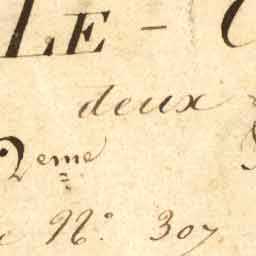 LE - C
deux
2eme
e N° 307